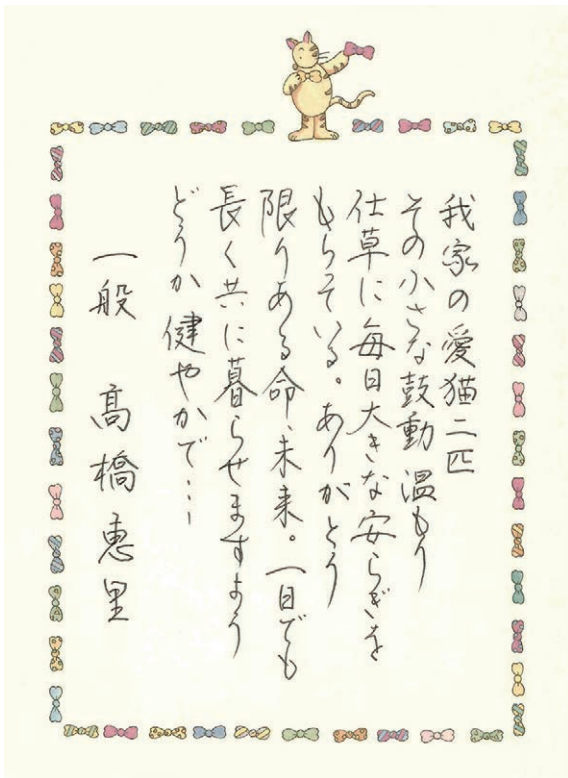 我家の愛猫二匹
その小さな鼓動 温もり
仕草に毎日大きな安らぎを
もらっている。ありがとう
限りある命、未来。一日でも
長く共に暮らせますよう
どうか健やかで…
一般 髙橋恵里